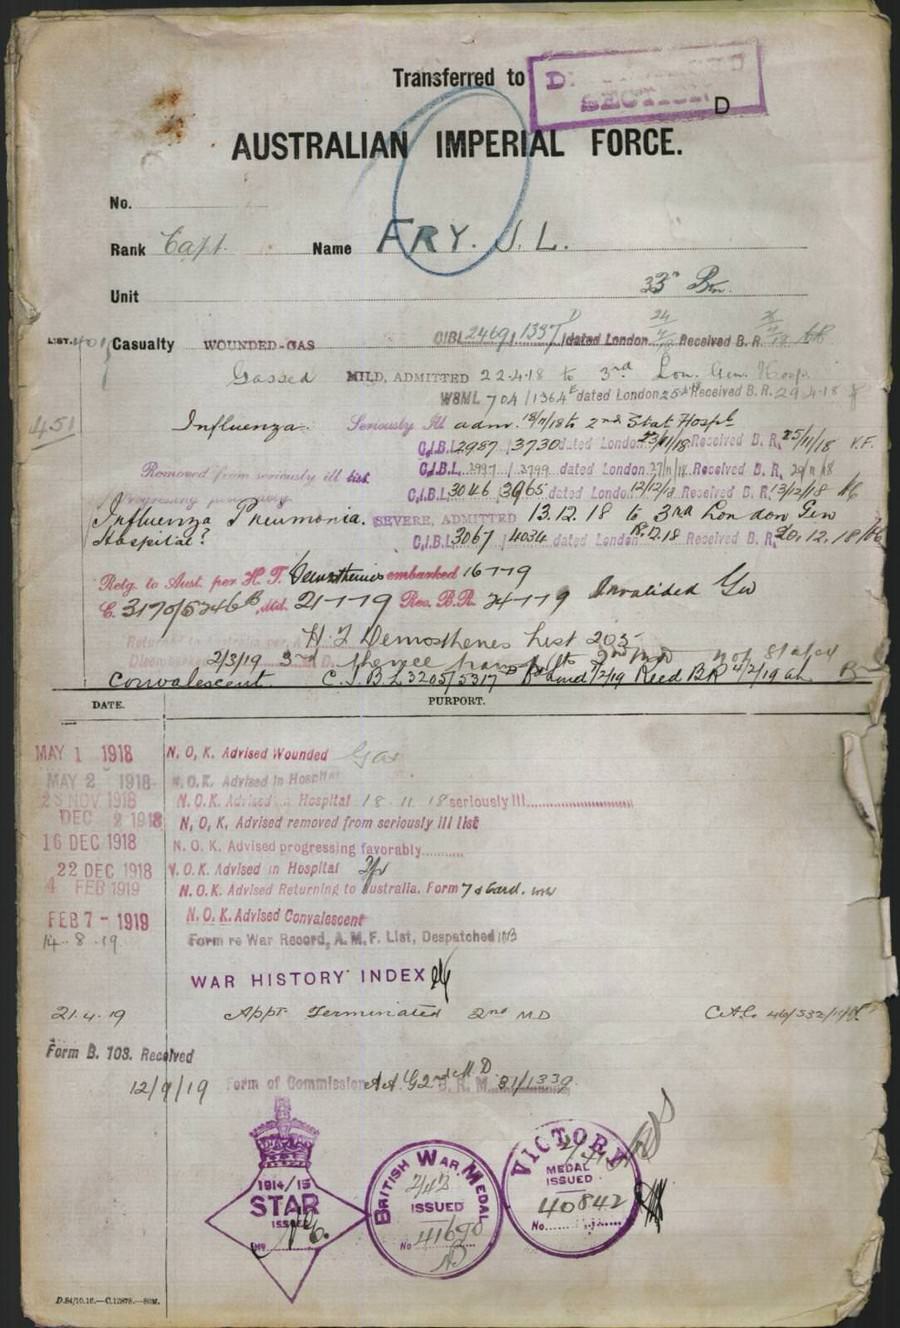 Transferred to
SECTION D
AUSTRALIAN IMPERIAL FORCE.
No.
Rank Capt. Name FRY. J. L.
Unit 33rd Bn.
LIST. Casualty WOUNDED-GAS CIBL 2469 1337 dated London Received B. R.
Gassed MILD, ADMITTED 22.4.18 to 3rd Lon. Gen. Hosp.
W8ML 704/1364 dated London 25 Received B. R. 29.4.18
451
Influenza. Seriously Ill adm. 18/11/18 to 2nd Stat Hospl
C.I.B.L. 2987 3730 dated London 23/11/18 Received B. R. 25/11/18 V.F.
Removed from seriously ill list C.I.B.L. 2997 3799 dated London 27/11/18 Received B. R. 29/11/18
Progressing C.I.B.L. 3046 3965 dated London 12/12/18 Received B. R. 13/12/18
Influenza Pneumonia. SEVERE, ADMITTED 13.12.18 to 3rd London Gen
Hospital? C.I.B.L. 3067 4034 dated London 18.12.18 Received B. R. 20.12.18
Retg. to Aust. per H. T. Demosthenes embarked 16-1-19
C. 3170/5246 Md. 21-1-19 Rec. B.R. 24-1-19 Invalided
H. T Demosthenes List 205
2/3/19 3rd M.D. thence 2nd M.D not stated
Convalescent. C.I.B.L 3205/5317 Recd BR 4/2/19
DATE. PURPORT.
MAY 1 1918 N. O. K. Advised Wounded Gas
MAY 2 1918 N. O. K. Advised in Hospital
25 NOV 1918 N. O. K. Advised in Hospital 18 11 18 seriously Ill
DEC 2 1918 N. O. K. Advised removed from seriously ill list
16 DEC 1918 N. O. K. Advised progressing favorably
22 DEC 1918 N. O. K. Advised in Hospital
4 FEB 1919 N. O. K. Advised Returning to Australia. Form 7 & Card.
FEB 7 - 1919 N. O. K. Advised Convalescent
14.8.19 Form re War Record, A. M. F. List, Despatched
WAR HISTORY INDEX
21.4.19 Appt Terminated 2nd MD
Form B. 103. Received
12/9/19 Form of Commission A.A.G 2nd M.D. B. R. M. 31/1339
1914/15 STAR ISSUED
No
BRITISH WAR MEDAL
ISSUED
No 41690
VICTORY
MEDAL
ISSUED
40842
No
D.84/10.16.—C.12878.—50M.